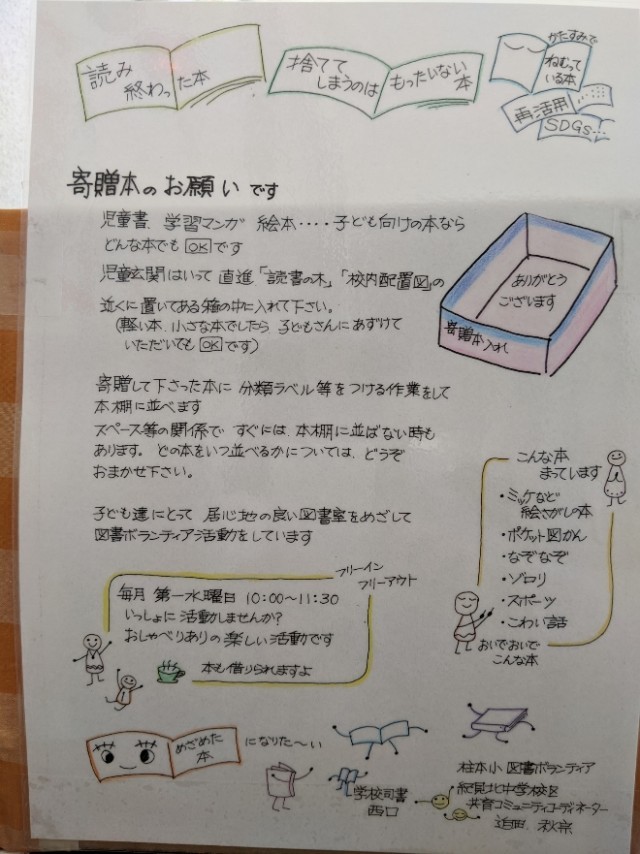 読み
終わった本
捨てて
しまうのは
もったいない
本
かたすみで
ねむって
いる本
再活用
SDGs...
寄贈本のお願いです
児童書、学習マンガ 絵本‥‥子ども向けの本なら
どんな本でも OK です
児童玄関はいって 直進「読書の木」「校内配置図」の
近くに置いてある箱の中に入れて下さい。
(軽い本、小さな本でしたら 子どもさんにあずけて
いただいても OK です)
ありがとう
ございます
寄贈本入れ
寄贈して下さった本に 分類ラベル等をつける作業をして
本棚に並べます
スペース等の関係で すぐには、本棚に並ばない時も
あります。どの本をいつ並べるかについては、どうぞ
おまかせ下さい。
こんな本
まっています
・ミッケなど
絵さがしの本
・ポケット図かん
・なぞなぞ
・ゾロリ
・スポーツ
・こわい話
おいでおいで
こんな本
子ども達にとって 居心地の良い図書室をめざして
図書ボランティア活動をしています
フリーイン
フリーアウト
毎月 第一水曜日 10:00〜11:30
いっしょに活動しませんか?
おしゃべりありの楽しい活動です
本も借りられますよ
めざめた
本
になりた〜い
学校司書
西口
柱本小 図書ボランティア
紀見北中学校区
共育コミュニティコーディネーター